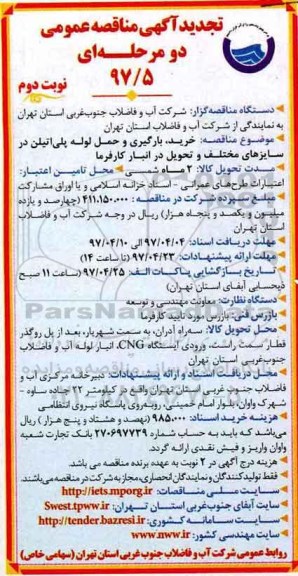 تجدید آگهی مناقصه عمومی
دو مرحله‌ای
۹۷/۵
نوبت دوم
دستگاه مناقصه‌گزار: شرکت آب و فاضلاب جنوب‌غربی استان تهران
به نمایندگی از شرکت آب و فاضلاب استان تهران
موضوع مناقصه: خرید، بارگیری و حمل لوله پلی‌اتیلن در
سایزهای مختلف و تحویل در انبار کارفرما
مدت تحویل کالا: ۲ ماه شمسی محل تامین اعتبار:
اعتبارات طرح‌های عمرانی - اسناد خزانه اسلامی و یا اوراق مشارکت
مبلغ سپرده شرکت در مناقصه: ۴۱۱.۱۵۰.۰۰۰ (چهارصد و یازده
میلیون و یکصد و پنجاه هزار) ریال در وجه شرکت آب و فاضلاب
استان تهران
مهلت دریافت اسناد: ۹۷/۰۴/۰۴ الی ۹۷/۰۴/۱۰
مهلت ارائه پیشنهادات: ۹۷/۰۴/۲۳ (تا ساعت ۱۴)
تاریخ بازگشایی پاکات الف: ۹۷/۰۴/۲۵ (ساعت ۱۱ صبح
ذیحسابی آبفای استان تهران)
دستگاه نظارت: معاونت مهندسی و توسعه
بازرس فنی: بازرس مورد تایید کارفرما
محل تحویل کالا: سه‌راه آدران، به سمت شهریار، بعد از پل روگذر
قطار سمت راست، ورودی ایستگاه CNG، انبار لوله آب و فاضلاب
جنوب‌غربی استان تهران
محل دریافت اسناد و ارائه پیشنهادات: دبیرخانه مرکزی آب و
فاضلاب جنوب غربی استان تهران واقع در کیلومتر ۲۲ جاده ساوه -
شهرک واوان، بلوار امام خمینی، روبه‌روی پاسگاه نیروی انتظامی
هزینه خرید اسناد: ۹۸۵.۰۰۰ (نهصد و هشتاد و پنج هزار) ریال
می‌باشد که باید به حساب شماره ۲۷۰۶۹۷۷۳۹ بانک تجارت شعبه
واوان واریز و فیش نقدی ارائه گردد.
هزینه درج آگهی در ۲ نوبت به عهده برنده مناقصه می باشد.
فقط تولیدکنندگان و نمایندگان انحصاری، مجاز به شرکت در مناقصه می‌باشند.
سایت ملی مناقصات: http://iets.mporg.ir
سایت آبفای جنوب‌غربی استان تهران: Swest.tpww.ir
سایت سامانه کشوری: http://tender.bazresi.ir
سایت مهندسی کشور: www.nww.ir
روابط عمومی شرکت آب و فاضلاب جنوب غربی استان تهران (سهامی خاص)